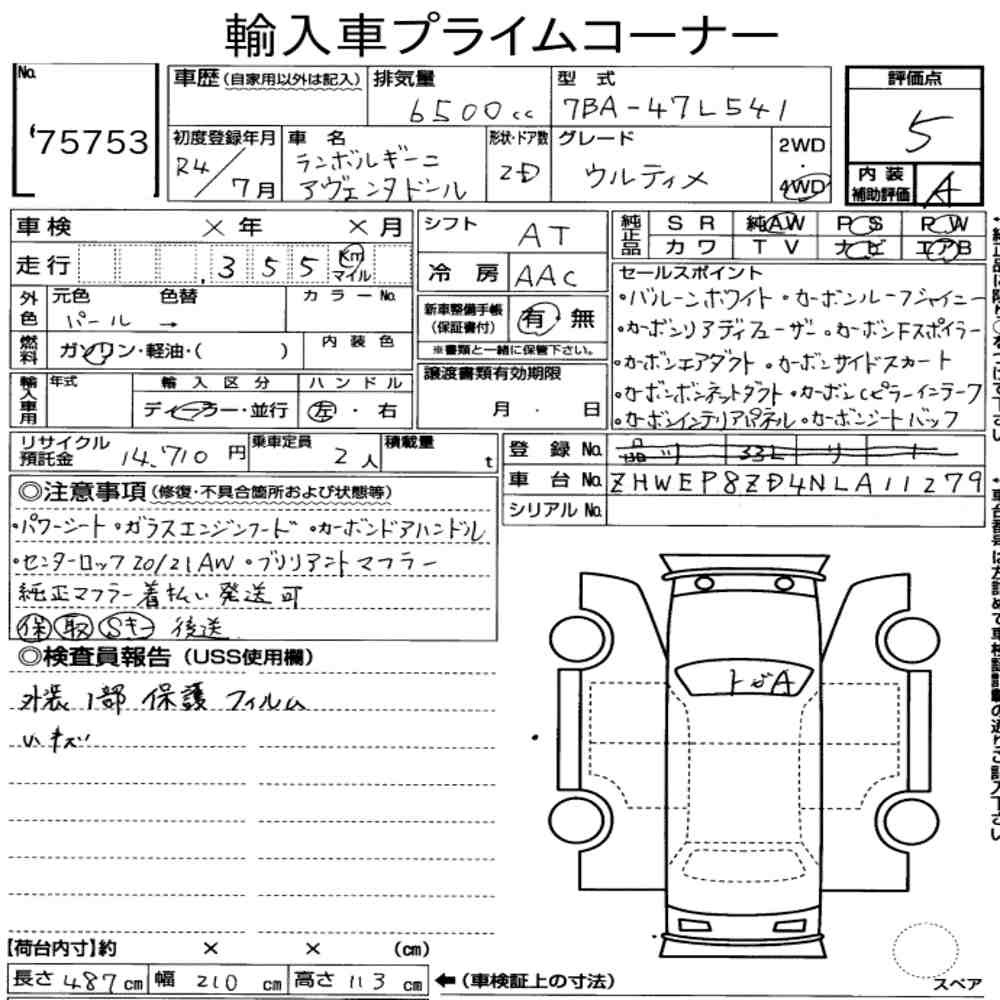 輸入車プライムコーナー
No.
75753
車歴 (自家用以外は記入)
排気量
6500cc
型式
7BA-47L541
評価点
5
初度登録年月
R4/7月
車名
ランボルギーニ
アヴェンタドール
形状・ドア数
2D
グレード
ウルティメ
2WD
・
4WD
内装
補助評価
A
車検 × 年 × 月
走行 .355 Km マイル
シフト
AT
冷房
AAC
純正品
SR 純AW PS PW
カワ TV ナビ エアB
外色
元色 色替
パール →
カラーNo.
燃料
ガソリン・軽油・( )
内装色
新車整備手帳
(保証書付)
有 無
※書類と一緒に保管下さい。
譲渡書類有効期限
月 . 日
セールスポイント
・バルーンホワイト・カーボンルーフシャイニー
・カーボンリアディフューザー・カーボンFスポイラー
・カーボンエアダクト・カーボンサイドスカート
・カーボンボンネットダクト・カーボンCピラーインテーク
・カーボンインテリアパネル・カーボンシートバック
輸入車用
年式
輸入区分
ディーラー・並行
ハンドル
左・右
リサイクル
預託金
14,710円
乗車定員
2人
積載量
t
登録No.
33L
車台No.
ZHWEP8ZD4NLA11279
シリアルNo.
◎注意事項 (修復・不具合箇所および状態等)
・パワーシート・ガラスエンジンフード・カーボンドアハンドル
・センターロック20/21AW・ブリリアントマフラー
純正マフラー着払い発送可
保 取 Sキー 後送
◎検査員報告 (USS使用欄)
外装1部保護フィルム
いキズ
トビA
【荷台内寸】約 × × (cm)
長さ 487cm 幅 210cm 高さ 113cm
←(車検証上の寸法)
スペア